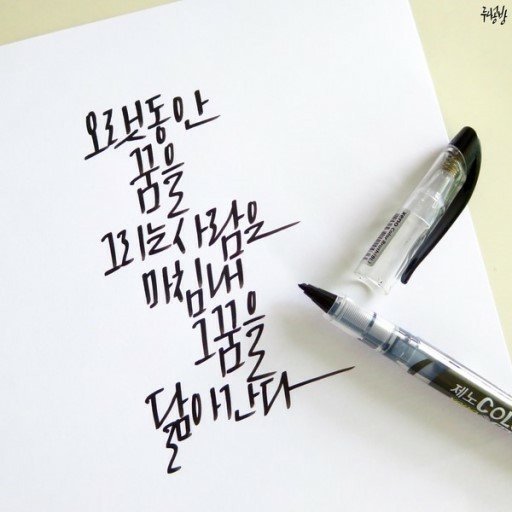 오랫동안
꿈을
그리는 사람은
마침내
그 꿈을
닮아간다
제노 COL